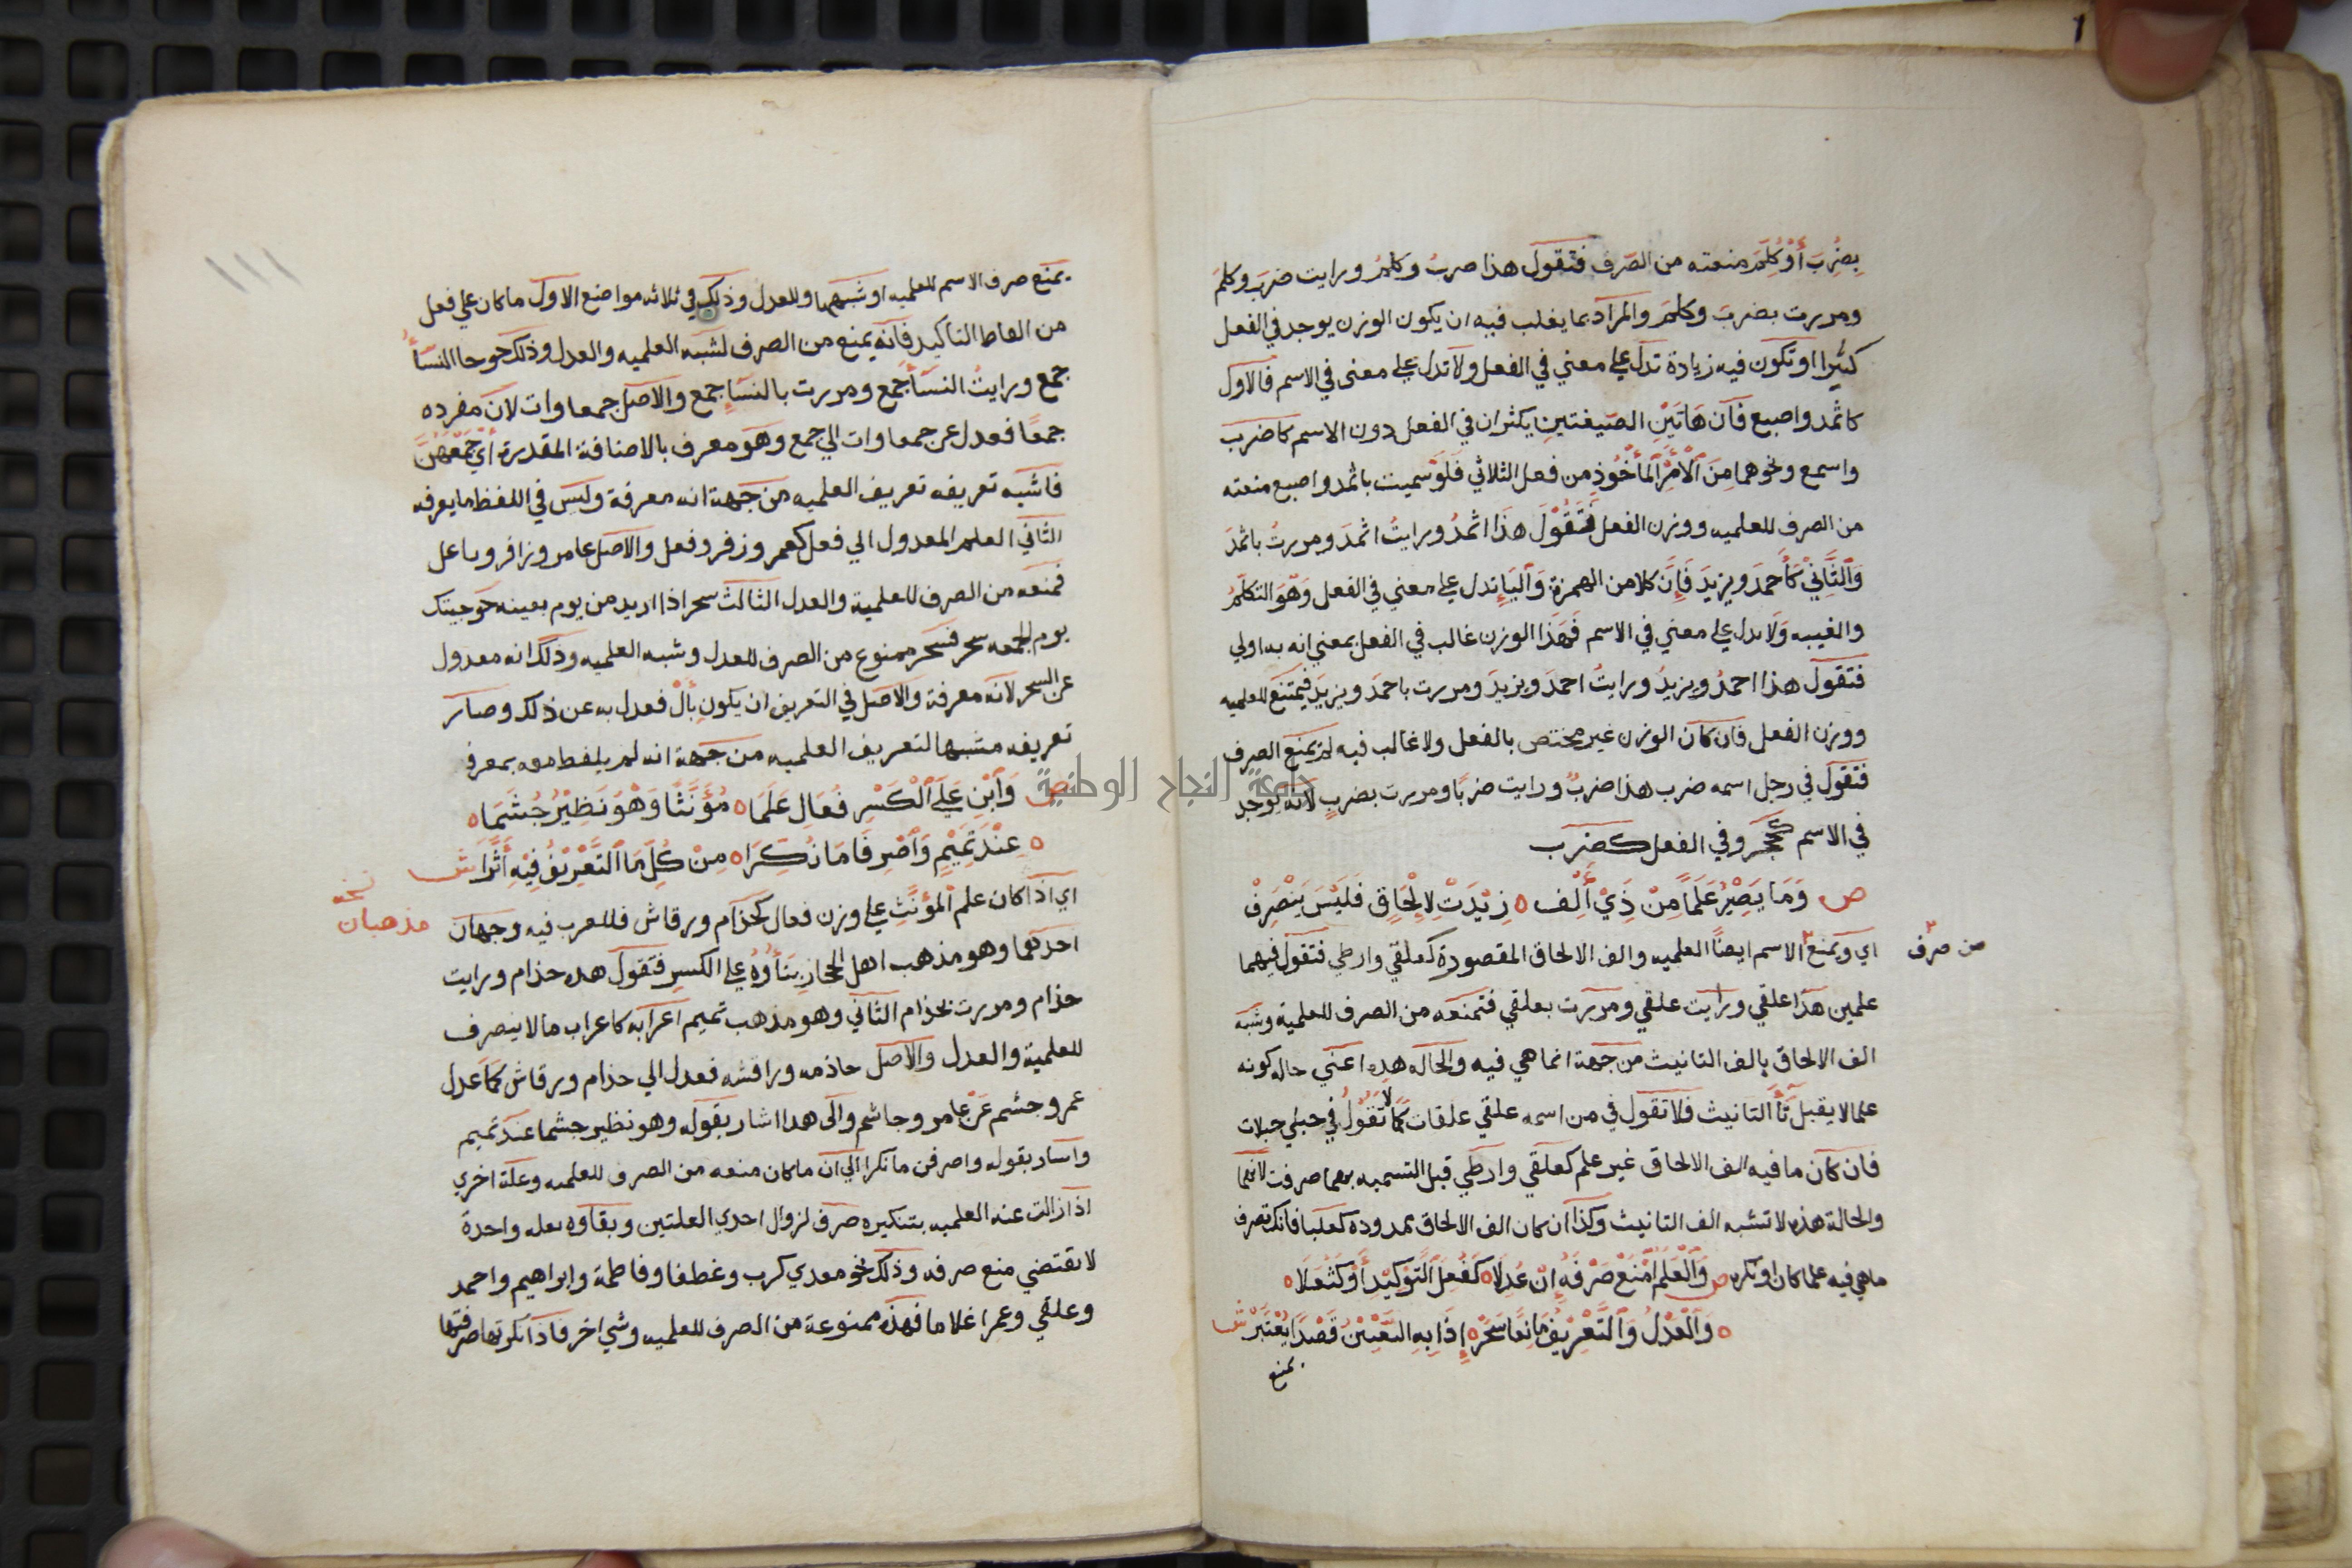 بِضُرِبَ أَوْ كُلِّمَ منعته من الصرف فتقول هذا ضربُ وكلمُ ورايت ضربَ وكلمَ
ومررت بضربَ وكلمَ والمراد بما يغلب فيه ان يكون الوزن يوجد في الفعل
كثيرا او تكون فيه زيادة تدل علي معني في الفعل ولا تدل علي معنى في الاسم فالاول
كاثمد واصبع فان هَاتَيْنِ الصيغتينِ يكثران في الفعل دون الاسم كاضرب
واسمع ونحوهما مِنَ ٱلْأَمْرِ ٱلْمَأْخُوذِ من فعل الثلاثي فَلَوْ سميت باثمد واصبع منعته
من الصرف للعلميه ووزن الفعل فَتَقُوْلَ هَذَا اثمدُ ورايتُ اثمدَ ومررتُ باثمدَ
وَٱلثَّانِيْ كَأَحمَدَ ويزيدَ فَإِنَّ كلا من الهمزة وَٱليَاءِ تدل علي معني في الفعل وَهُوَ التكلمُ
والغيبه وَلا تدل علي معني في الاسم فَهَذَا الوزن غالب في الفعل بمعني انه به اولي
فتقول هذا احمدُ ويزيدُ ورايتُ احمدَ ويزيدَ ومررت باحمدَ ويزيدَ فيمتنع للعلميه
ووزن الفعل فان كان الوزن غير مختص بالفعل ولا غالب فيه لم يمنع الصرف
فتقول في رجل اسمه ضرب هذا ضربٌ ورايت ضربًا ومررت بضربٍ لانه يوجد
في الاسم كحجر وفي الفعل كضرب
ص وَمَا يَصِيْرُ عَلَمًا مِنْ ذِيْ أَلِف ٥ زِيْدَتْ لِإِلْحَاقٍ فَلَيْسَ يَنْصَرِفْ
اي ويمنع الاسم ايضاً العلميه والف الالحاق المقصورة كعلقي وارطي فتقول فيهما
من صرف
علمين هذا علقي ورايت علقي ومررت بعلقي فتمنعه من الصرف للعلمية وشبه
الف الالحاق بالف التانيث من جهة انما هي فيه والحاله هذه اعني حاله كونه
علما لا يقبل تَأَ التانيث فلا تقول في من اسمه علقي علقات كما لا تَقُوْلُ في حبلي حبلات
فان كان ما فيه الف الالحاق غير علم كعلقي وارطي قبل التسميه بهما صرفت لانهما
والحالة هذه لا تشبه الف التانيث وكذا ان كان الف الالحاق ممدوده كعلبا فانك تصرف
ماهي فيه علما كان او نكره ص وَٱلْعَلَمُ ٱمْنَعْ صَرْفَهُ إِنْ عُدِلَا ٥ كَفُعَلِ ٱلتَّوْكِيْدِ أَوْ كَثُعَلَا ٥
٥ وَٱلْعَدْلُ وَٱلتَّعْرِيْفُ مَانِعَا سَحَرْ ٥ إِذَا بِهِ التَّعْيِيْنُ قَصْدًا يُعْتَبَرْ ش
يمنع
١١١
يمنع صرف الاسم للعلميه او شبهها وللعدل وذلك في ثلاثه مواضع الاول ما كان علي فعل
من الفاظ التاكيد فانه يمنع من الصرف لشبه العلميه والعدل وذلك نحو جا النسآءُ
جمع ورايتُ النسآءَ جمع ومررت بالنسآءِ جمع والاصل جمعاوات لان مفرده
جمعآ فعدل عن جمعاوات الي جمع وهو معرف بالاضافة المقدرة أَيْ جُمَعَهُنَّ
فاشبه تعريفه تعريف العلميه من جهة انه معرفة وليس في اللفظ ما يعرفه
الثاني العلم المعدول الي فعل كعمر وزفر وفعل والاصل عامر وزافر وباعل
فمنعه من الصرف للعلمية والعدل الثالث سحر اذا اريد من يوم بعينه نحو جيتك
يوم الجمعه سحر فسحر ممنوع من الصرف للعدل وشبه العلميه وذلك انه معدول
عن السحر لانه معرفة والاصل في التعريف ان يكون بِأَلْ فعدل به عن ذلك وصار
تعريفه مشبها لتعريف العلميه من جهة انه لم يلفظ معه بمعرف
ص وَٱبْنِ عَلَي ٱلْكَسْرِ فَعَالِ عَلَمَا ٥ مُؤَنَّثًا وَهْوَ نَظِيْرُ جُشَمَا ٥
٥ عِنْدَ تَمِيْمٍ وَٱصْرِفَا مَا نُكِّرَا ٥ مِنْ كُلِّ مَا ٱلتَّعْرِيْفُ فِيْهِ أَثَّرَا ش
اي اذا كان علم الْمؤنثِ علي وزن فعال كحذام ورقاش فللعرب فيه وجهان
نسخه مذهبان
احدهما وهو مذهب اهل الحجاز بِنَأُوهُ علي الكسر فتقول هذه حذام ورايت
حذام ومررت بحذام الثاني وهو مذهب تميم اعرابه كاعراب ما لا ينصرف
للعلمية والعدل والاصل حاذمه وراقشه فعدل الي حذام ورقاش كما عدل
عمر وجشم عَنْ عامر وجاشم والى هذا اشار بقوله وهو نظير جشما عند تميم
واشار بقوله واصرفن ما نكرا الي ان ما كان منعه من الصرف للعلميه وعلة اخري
اذا زالت عنه العلميه بتنكيره صرف لزوال احدي العلتين وبقاوه بعله واحدة
لا تقتضي منع صرفه وذلك نحو معدي كرب وغطفا وفاطمة وابراهيم واحمد
وعلقي وعمر اعلاما فهذه ممنوعة من الصرف للعلميه وشي اخر فاذا نكرتها صرفتها
جامعة النجاح الوطنية